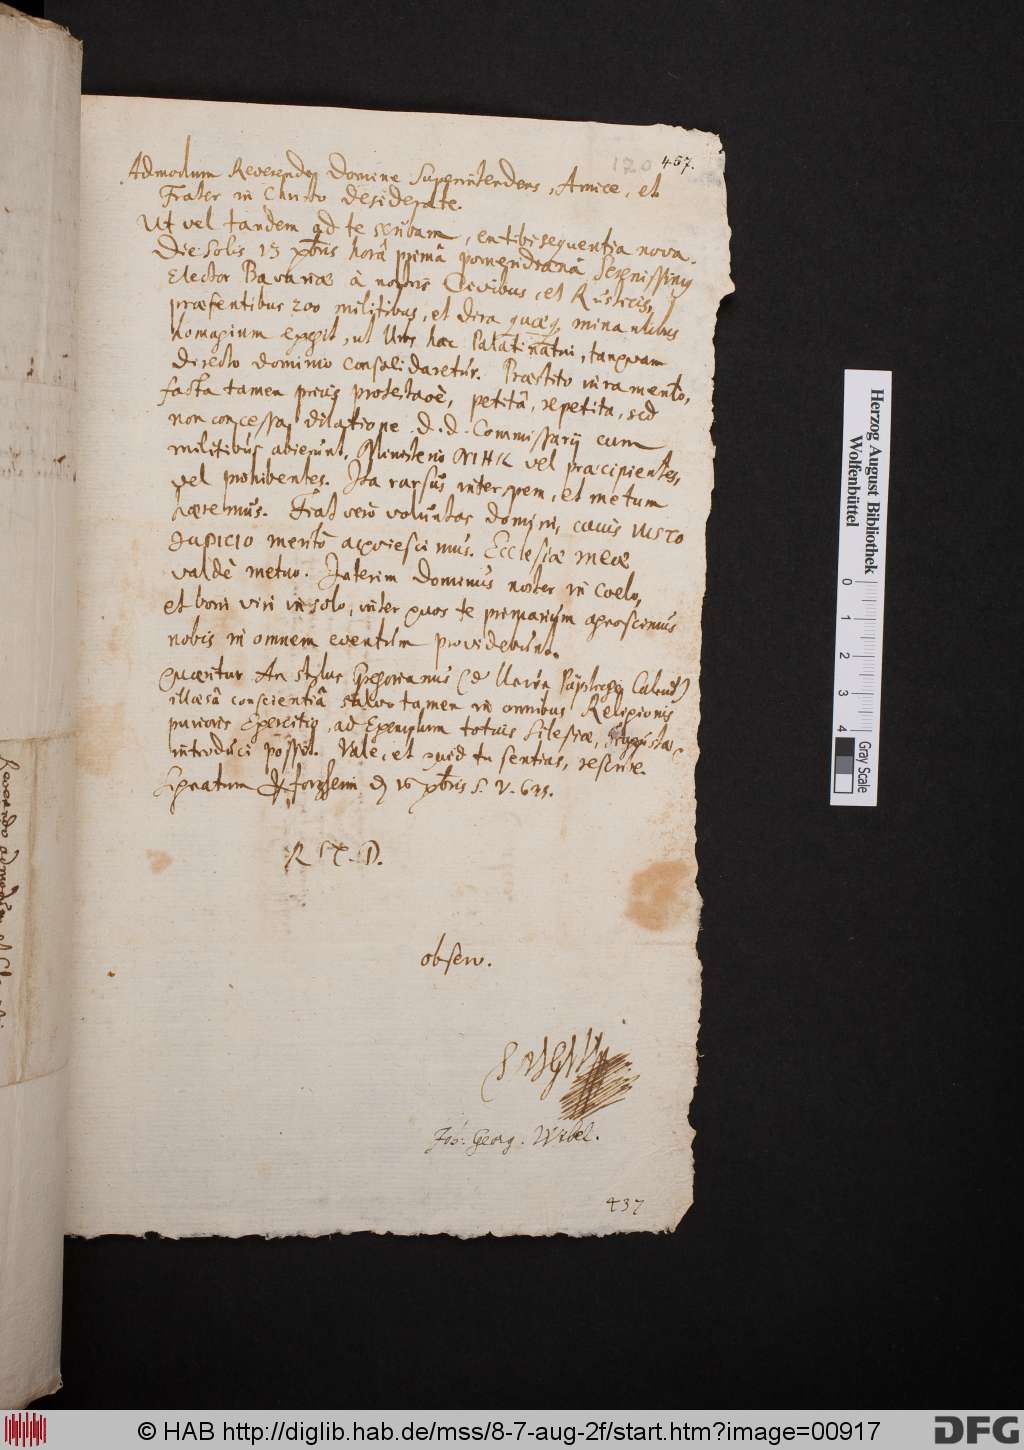 120 467.
Admodum Reverende Domine Superintendens, Amice, et
Frater in Christo desiderate.
Ut vel tandem ad te scribam, en tibi sequentia nova.
Die Solis 15 xbris horâ primâ pomeridianâ Serenissimg
Elector Bavariae à nostris Civibus, et Rusticis,
praesentibus 200 militibus, et dira quaeq minantibus
homagium exegit, ut Urbs haec Palatinatui, tanquam
directo dominio consolidaretur. Praestito iuramento,
facta tamen prius protestaoe, petitâ, repetita, sed
non concessa, dilatione. D. D. Commissarij cum
militibus abierunt, Ministerio NIHIL vel praecipientes,
vel prohibentes. Ita rursus inter spem, et metum
haeremus. Fiat vero voluntas Domini, cuius IUSTO
IUDICIO meritò acquiescimus. Ecclesiae meae
valdè metuo. Interim Dominus noster in Coelo,
et boni viri in solo, inter quos te primarium agnoscimus
nobis in omnem eventum providebunt.
Quaeritur An stylus Gregorianus
illaesâ conscientiâ salvo tamen in omnibus Religionis
purioris Exercitio, ad Exemplum totius Silesiae,
introduci possit. Vale, et quid tu sentias, rescribe.
Signatum 16 xbris S. V. 625.
R T. D.
observ.
Joh: Georg. Wibel.
437
Herzog August Bibliothek
Wolfenbüttel
0 1 2 3 4
Gray Scale
© HAB http://diglib.hab.de/mss/8-7-aug-2f/start.htm?image=00917
DFG